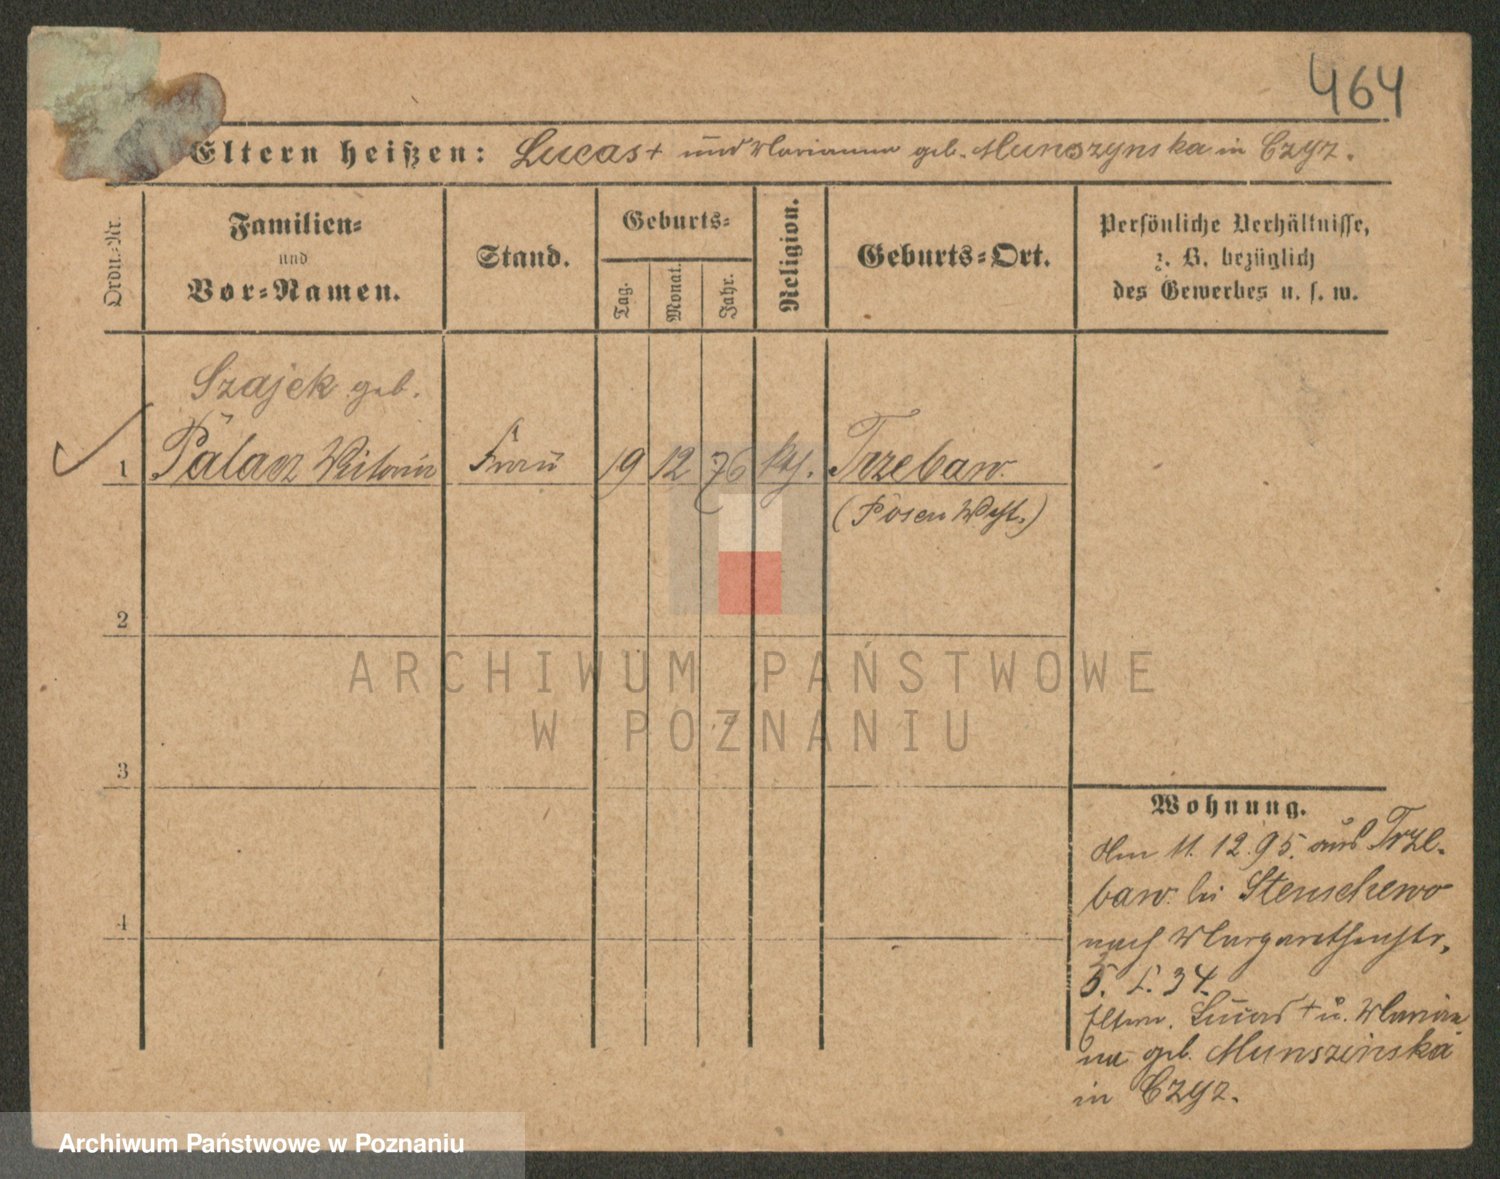 464
Eltern heißen: Lucas + und Marianna geb. Munszynska in Czyz.
Ordn.-Nr.
Familien-
und
Vor-Namen.
Stand.
Geburts-
Tag.
Monat.
Jahr.
Religion.
Geburts-Ort.
Persönliche Verhältnisse,
z. B. bezüglich
des Gewerbes u. s. w.
Szajek geb.
1 Palacz Victoria Frau 19 12 76 kth. Trzebaw.
(Posen West.)
2
3
4
Wohnung.
Am 11.12.95. aus Trze-
baw. bei Stenschewo
nach Margarethenstr.
5. 34.
Eltern. Lucas + u. Marian
na geb. Munszinska
in Czyz.
ARCHIWUM PAŃSTWOWE
W POZNANIU
Archiwum Państwowe w Poznaniu